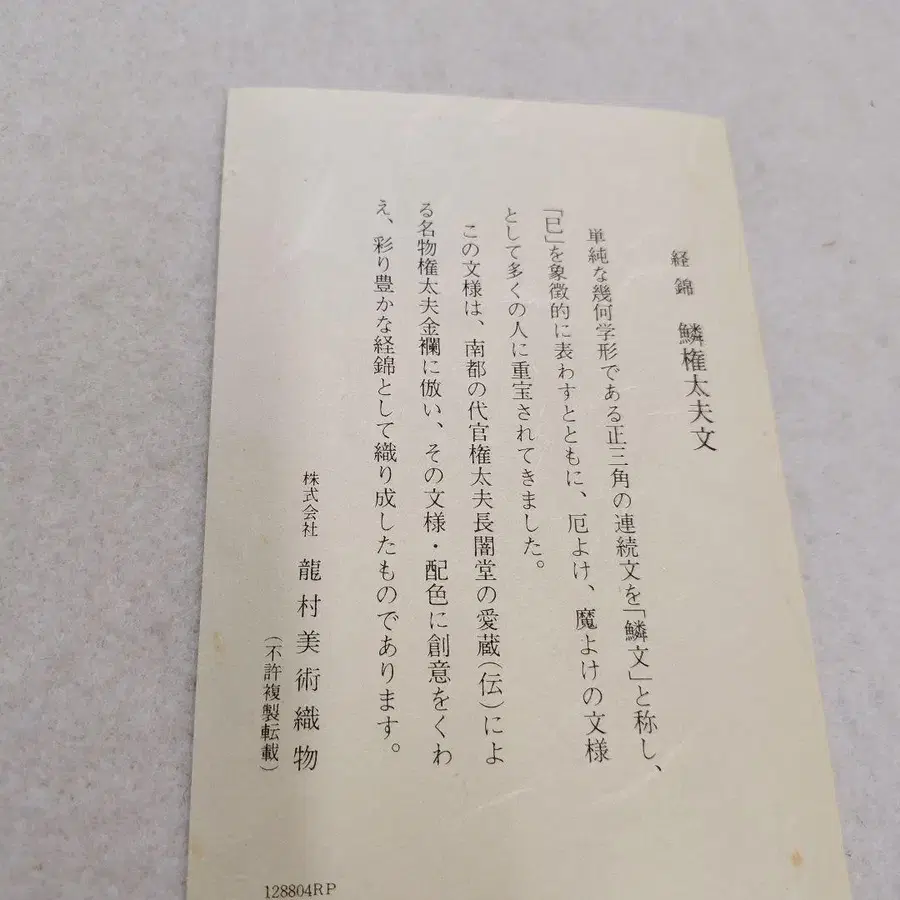 経錦 鱗権太夫文
単純な幾何学形である正三角の連続文を「鱗文」と称し、
「巳」を象徴的に表わすとともに、厄よけ、魔よけの文様
として多くの人に重宝されてきました。
この文様は、南都の代官権太夫長闇堂の愛蔵(伝)によ
る名物権太夫金襴に倣い、その文様・配色に創意をくわ
え、彩り豊かな経錦として織り成したものであります。
株式会社 龍村美術織物
(不許複製転載)
128804RP